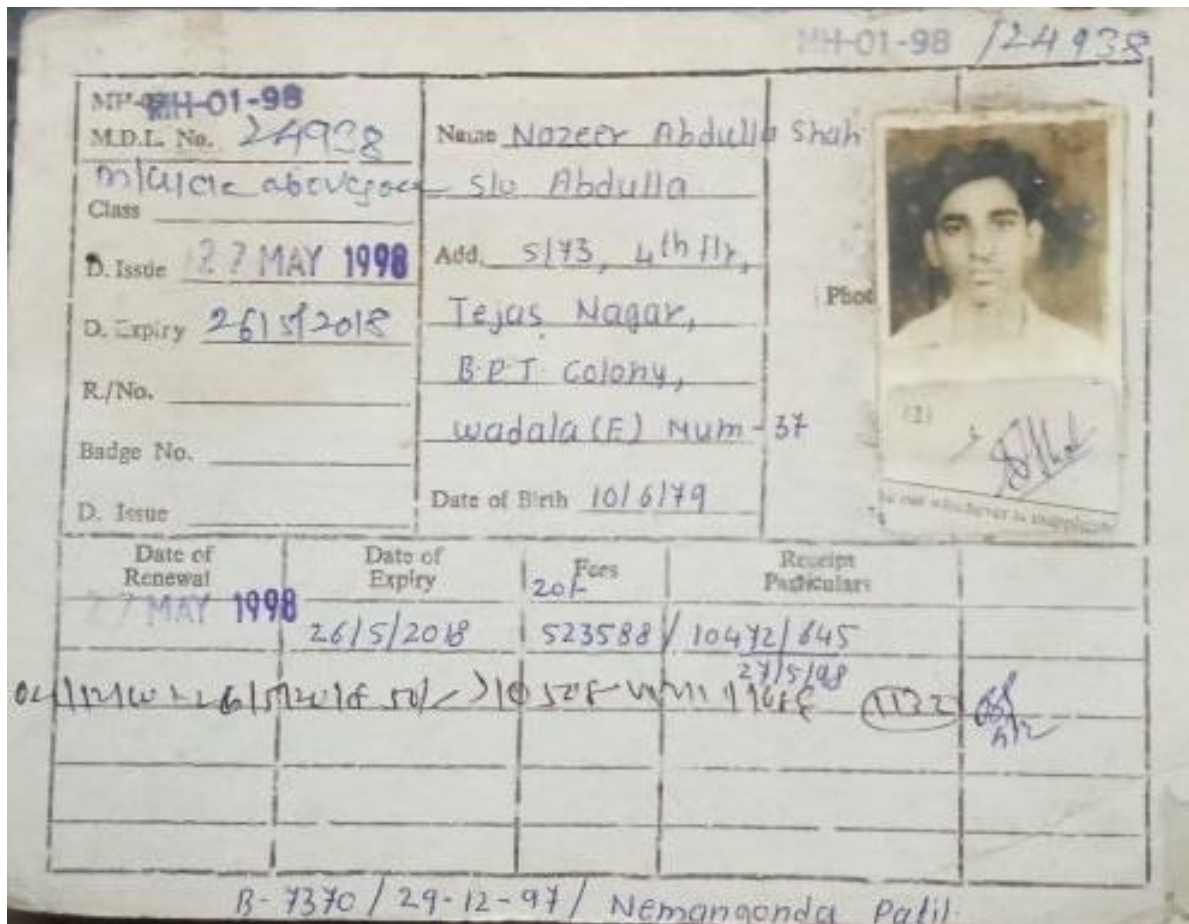 MH-01-98 /24938
MH-01-98
M.D.L. No. 24938
M/cycle above 50cc
Class
D. Issue 27 MAY 1998
D. Expiry 26/5/2018
R./No.
Badge No.
D. Issue
Name Nazeer Abdulla Shah
S/o Abdulla
Add. S/73, 4th flr,
Tejas Nagar,
B.P.T. Colony,
Wadala (E) Mum-37
Date of Birth 10/6/79
Photo
(2)
Date of Renewal
Date of Expiry
Fees
Receipt Particulars
27 MAY 1998
26/5/2018
20/-
523588/10472/645
27/5/98
26/5/2018 50/-
1132
B-7370/29-12-97/ Nemangonda Patil